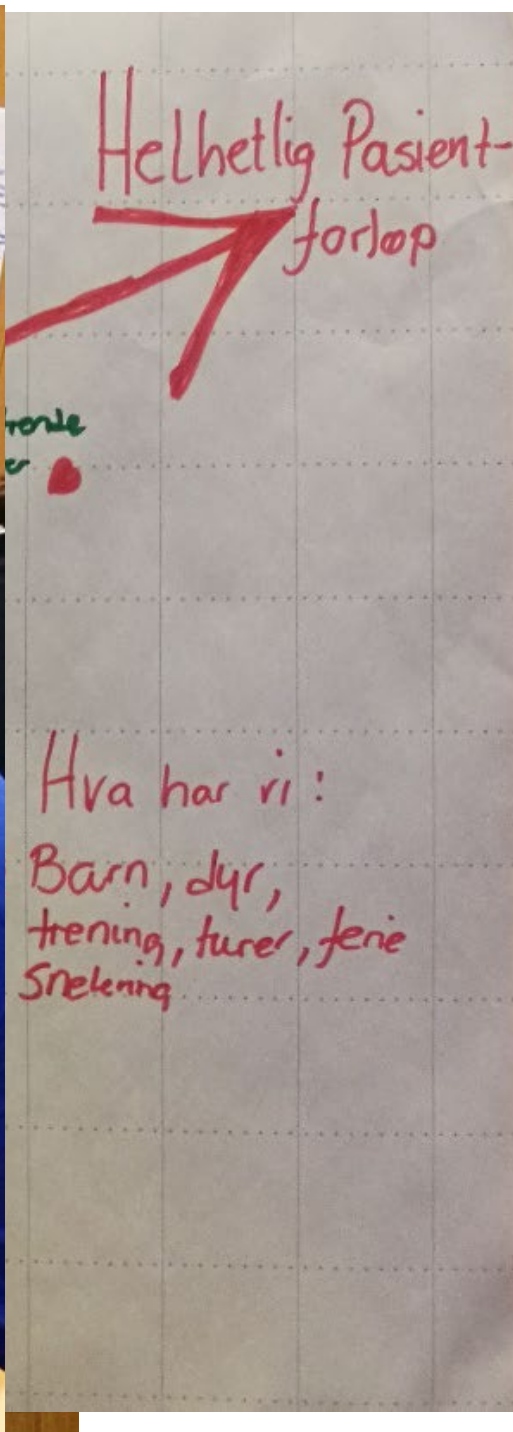 Helhetlig Pasient-
forløp
Hva har vi:
Barn, dyr,
trening, turer, ferie
Snekring